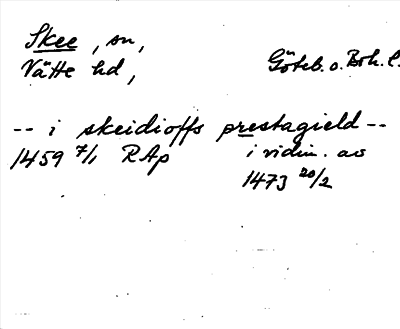 Skee, sn,
Vätte hd,
Göteb. o. Boh. l.
-- i skeidioffs prestagield --
1459 7/1 RAp
i vidim. av
1473 20/2